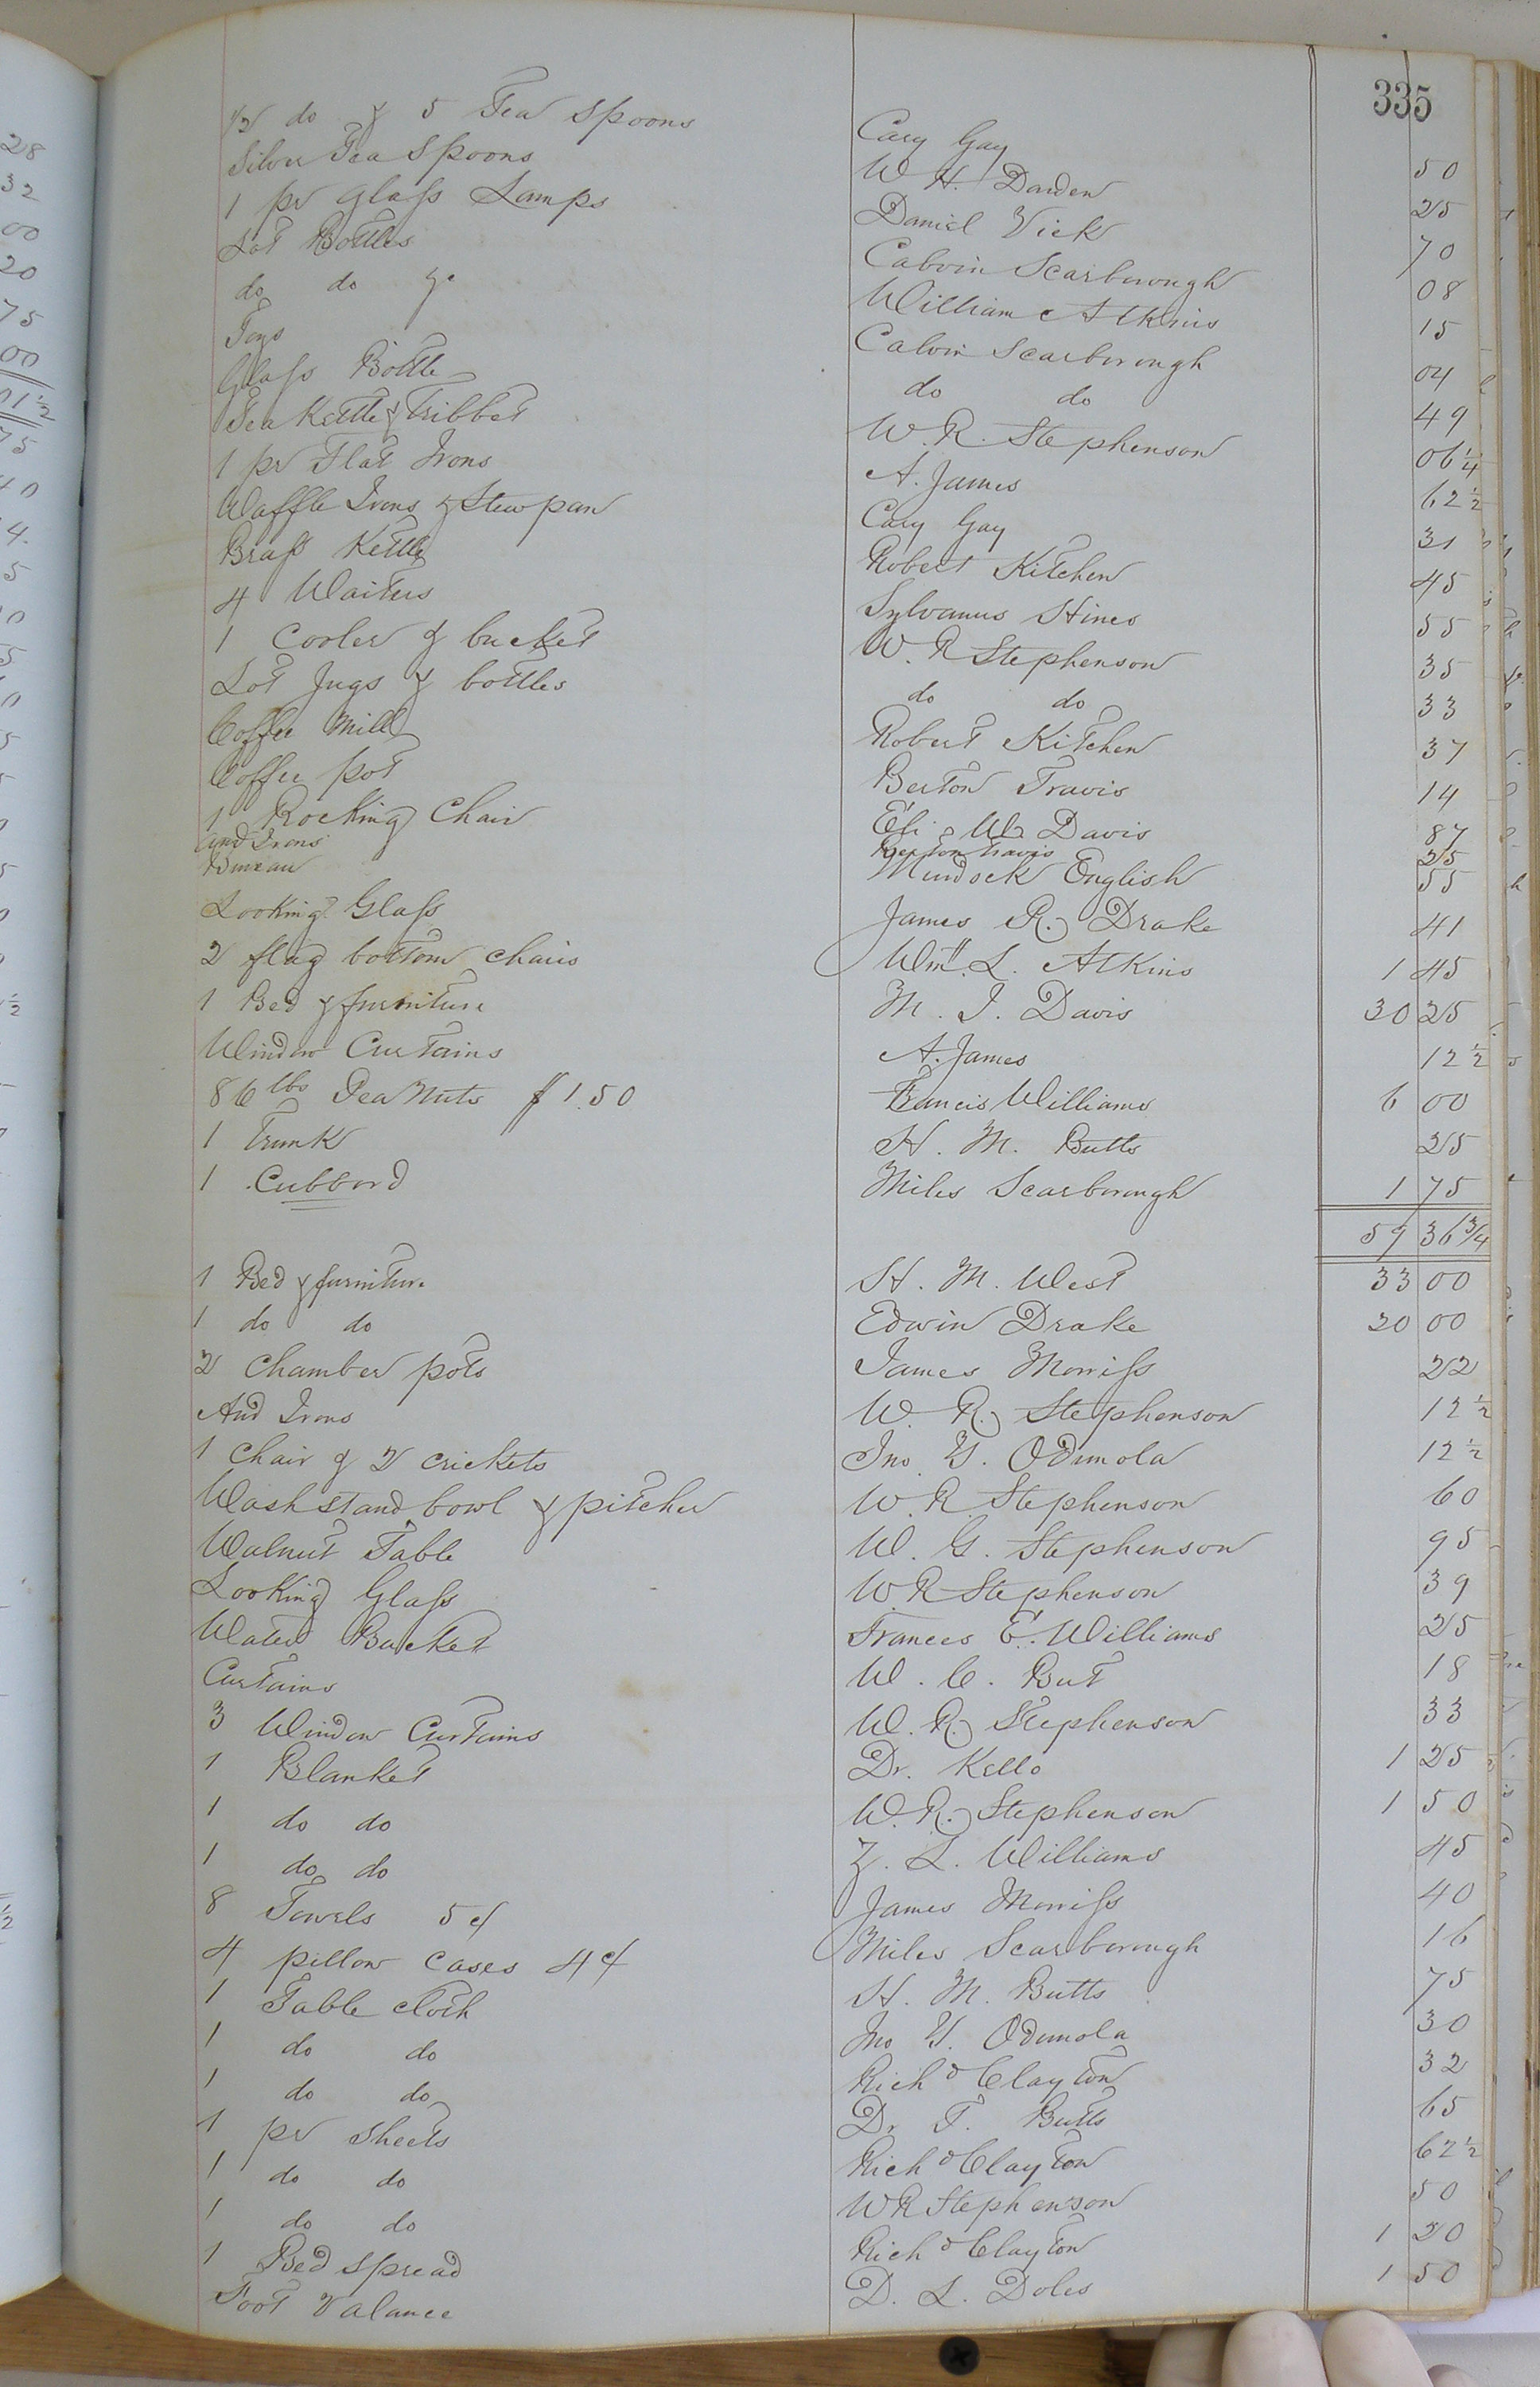 335
1/2 do & 5 Tea Spoons Cary Gay 50
Silver Tea Spoons W H. Darden 25
1 pr Glass Lamps Daniel Vick 70
Lot Bottles Calvin Scarborough 08
do do &c William Atkins 15
Calvin Scarborough 04
Glass Bottle do do 49
Tea Kettle & Tribbet W. R. Stephenson 06 1/4
1 pr Flat Irons A. James 62 1/2
Waffle Irons & Stew pan Cary Gay 31
Brass Kettle Robert Kitchen 45
4 Waiters Sylvanus Hines 55
1 Cooler & bucket W. R Stephenson 35
Lot Jugs & bottles do do 33
Coffee Mill Robert Kitchen 37
Coffee pot Berton Travis 14
1 Rocking Chair Eli W. Davis 87
And Irons Berton Travis 25
Bureau Murdock English 55
Looking Glass James R. Drake 41
2 flag bottom chairs Wm. L. Atkins 1 45
1 Bed & furniture M. J. Davis 30 25
Window Curtains A. James 12 1/2
86 lbs Pea Nuts $1.50 Francis Williams 6 00
1 Trunk H. M. Butts 25
1 Cubbord Miles Scarborough 1 75
59 36 3/4
1 Bed & furniture H. M. West 33 00
1 do do Edwin Drake 20 00
2 Chamber pots James Morriss 22
And Irons W. R. Stephenson 12 1/2
1 Chair & 2 crickets Jno. Y. Odimola 12 1/2
Wash stand bowl & pitcher W. R Stephenson 60
Walnut Table W. G. Stephenson 95
Looking Glass W. R Stephenson 39
Water Bucket Frances E. Williams 25
Curtains W. C. But 18
3 Window Curtains W. R. Stephenson 33
1 Blanket Dr. Kello 1 25
1 do do W. R. Stephenson 1 50
1 do do Z. L. Williams 45
8 Towels 5¢ James Morriss 40
4 pillow Cases 4¢ Miles Scarborough 16
1 Table cloth H. M. Butts 75
1 do do Jno Y. Odimola 30
1 do do Richd Clayton 32
1 pr Sheets Dr T. Butts 65
1 do do Richd Clayton 62 1/2
1 do do W R Stephenson 50
1 Bed spread Richd Clayton 1 20
Foot Valance D. L. Doles 1 50